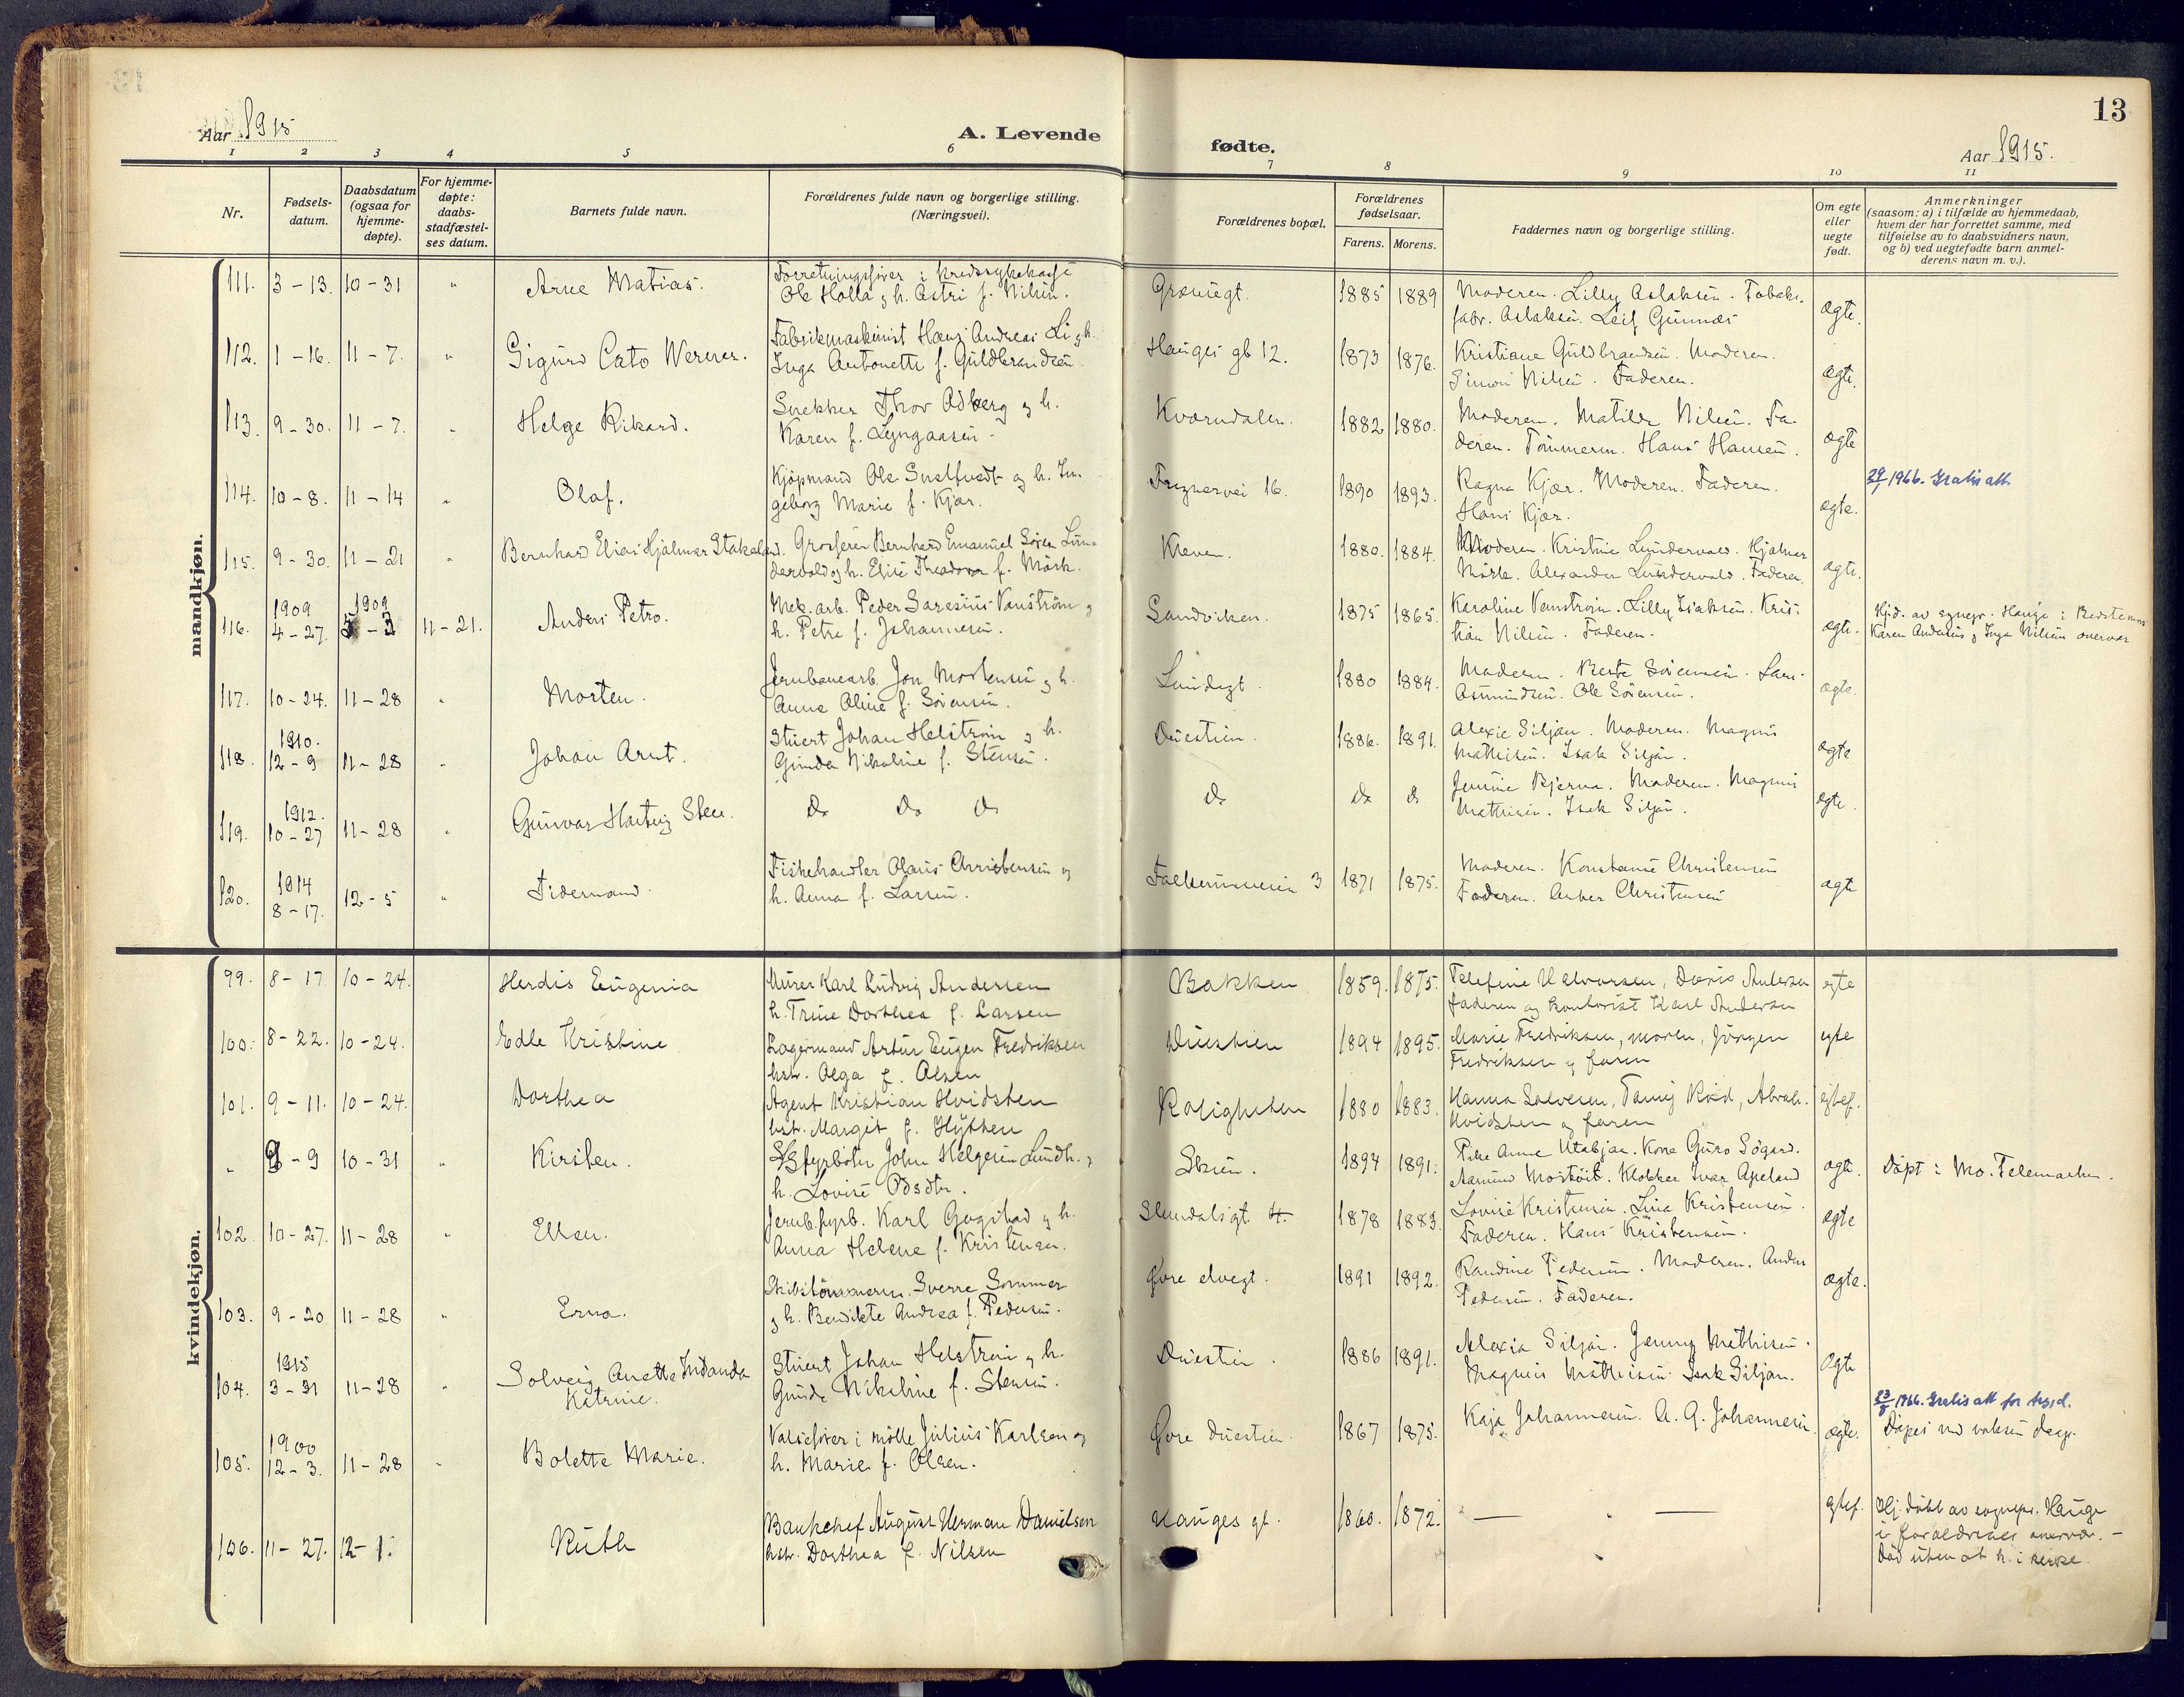 13
Aar 1915
A. Levende
fødte.
Aar 1915.
1 2 3 4 5 6 7 8 9 10 11
Nr.
Fødsels-
datum.
Daabsdatum
(ogsaa for
hjemme-
døpte).
For hjemme-
døpte:
daabs-
stadfæstel-
ses datum.
Barnets fulde navn.
Forældrenes fulde navn og borgerlige stilling.
(Næringsvei).
Forældrenes bopæl.
Forældrenes
fødselsaar.
Farens. Morens.
Faddernes navn og borgerlige stilling.
Om egte
eller
uegte
født.
Anmerkninger
(saasom: a) i tilfælde av hjemmedaab,
hvem der har forrettet samme, med
tilføielse av to daabsvidners navn,
og b) ved uegtefødte barn anmel-
derens navn m. v.).
mandkjøn.
111. 3-13. 10-31 " Arne Matias.
Forretningsfører i kredssykekasse
Ole Holla og h. Astri f. Nilsen.
1885 1889
Moderen. Lilly Aslaksen. Tobaks.
fabr. Aslaksen. Leif Gunnæs
ægte.
112. 1-16. 11-7. " Sigurd Cato Werner.
Fabrikmaskinist Hans Andreas Li og h.
Inga Antonette f. Guldbrandsen.
Hauges gt 12.
1873 1876.
Kristiane Guldbrandsen. Moderen.
Simon Nilsen. Faderen.
ægte.
113. 9-30. 11-7. " Helge Rikard.
Snekker Thor Adberg og h.
Karen f. Lyngaasen.
Kværndalen.
1882 1880.
Moderen. Matilde Nilsen. Fa-
deren. Tømmerm. Hans Hansen.
ægte
114. 10-8. 11-14 " Olaf.
Kjøpmand Ole Sneltvedt og h. In-
geborg Marie f. Kjær.
Frognervei 16.
1890 1893.
Ragna Kjær. Moderen. Faderen.
Hans Kjær.
ægte.
29/1 1966. Gratis att.
115. 9-30. 11-21 " Bernhard Elias Hjalmar Stakeland.
Grosserer Bernhard Emanuel Søren Lun-
dervold og h. Elise Theodora f. Mørk.
Kleven.
1880. 1884.
Moderen. Kristine Lundervold. Hjalmar
Mørk. Alexander Lundervold. Faderen.
ægte.
116. 1909 4-27. 1909 11-21. Anders Petro.
Mek. arb. Peder Saresius Venstrøm og
h. Petra f. Johannesen.
Sandviken.
1875 1865.
Karoline Venstrøm. Lilly Isaksen. Kris-
tian Nilsen. Faderen.
ægte.
Hjd. av sognepr. Hauge i
Karen Andersens og Inga Nilsens overvær
117. 10-24. 11-28 " Morten.
Jernbanearb. Jon Mortensen og h.
Anna Oline f. Sørensen.
Lundegt.
1880 1884.
Moderen. Berte Sørensen. Lars
Asmundsen. Ole Sørensen.
ægte.
118. 1910. 12-9 11-28 " Johan Arnt.
Stuert Johan Helstrøm og h.
Gunda Nikoline f. Stensen.
Duestien.
1886. 1891.
Alexie Siljan. Moderen. Magnus
Mathisen. Isak Siljan.
ægte
119. 1912. 10-27 11-28 " Gunvar Hartvig Sten.
Do Do Do
Do Do Do
Jennie Bjerva. Moderen. Magnus
Mathisen. Isak Siljan.
ægte.
120. 1914 8-17. 12-5 " Fidemand.
Fiskehandler Olaus Christensen og
h. Anna f. Larsen.
Falkumveien 3
1871 1875.
Moderen. Konstanse Christensen
Faderen. Anker Christensen
ægte
kvindekjøn.
99. 8-17 10-24. Herdis Eugenia
Murer Karl Ludvig Andersen
h. Trine Dorthea f. Larsen
Bakken
1859. 1875.
Telefine Halvorsen, Doris Andersen
faderen og kontorist Karl Andersen
egte
100. 8-22. 10-24. Edle Kristine
Lagermand Artur Eugen Fredriksen
hstr. Olga f. Olsen
Duestien
1894 1895.
Marie Fredriksen, moren, Jørgen
Fredriksen og faren
egte
101. 9-11. 10-24. Dorthea
Agent Kristian Hvidsten
hstr. Margit f. Hytten
Roligheten
1880 1883.
Hanna Solvesen, Fanny Rød, Abrah.
Hvidsten og faren
egtef.
" 9-9 10-31 " Kirsten.
S/S fyrbøter John Helgesen Lundh. og
h. Lovise Odsdtr.
Skien.
1894 1891.
Pike Anne Utabjaa. Kone Guro Søgard.
Aamund Mostøit. Klokker Ivar Apeland
ægte.
Døpt i Mo. Telemarken.
102. 10-27. 11-28 " Ellen.
Jernb.fyrb. Karl Gogstad og h.
Anna Helene f. Kristensen.
1878 1883.
Lovise Kristensen. Lina Kristensen.
Faderen. Hans Kristensen.
ægte
103. 9-20 11-28 " Erna.
Skibstømmerm. Sverre Sommer
og h. Bendikte Andrea f. Pedersen.
Øvre elvegt.
1891 1892.
Randine Pedersen. Moderen. Anders
Pedersen. Faderen.
ægte.
104. 1915 3-31 11-28 " Solveig Anette Indianda
Katrine.
Stuert Johan Helstrøm og h.
Gunda Nikoline f. Stensen.
Duestien.
1886 1891.
Alexia Siljan. Jenny Mathisen.
Magnus Mathisen. Isak Siljan.
ægte
105. 1900 12-3. 11-28 " Bolette Marie.
Valsefører i mølle Julius Karlsen og
h. Marie f. Olsen.
Øvre Duestien.
1867 1875.
Kaja Johannesen. A. G. Johannesen.
ægte.
23/8 1966. Gratis att for trygd.
Døpes ved voksen daap.
106. 11-27. 12-1. Ruth
Bankchef August Herman Danielsen
hstr. Dorthea f. Nilsen
Hauges gt.
1860. 1872.
— " —
egtef.
Hj. døbt av sognepr. Hauge
i forældrenes overvær. —
Død uten at h. i kirke.